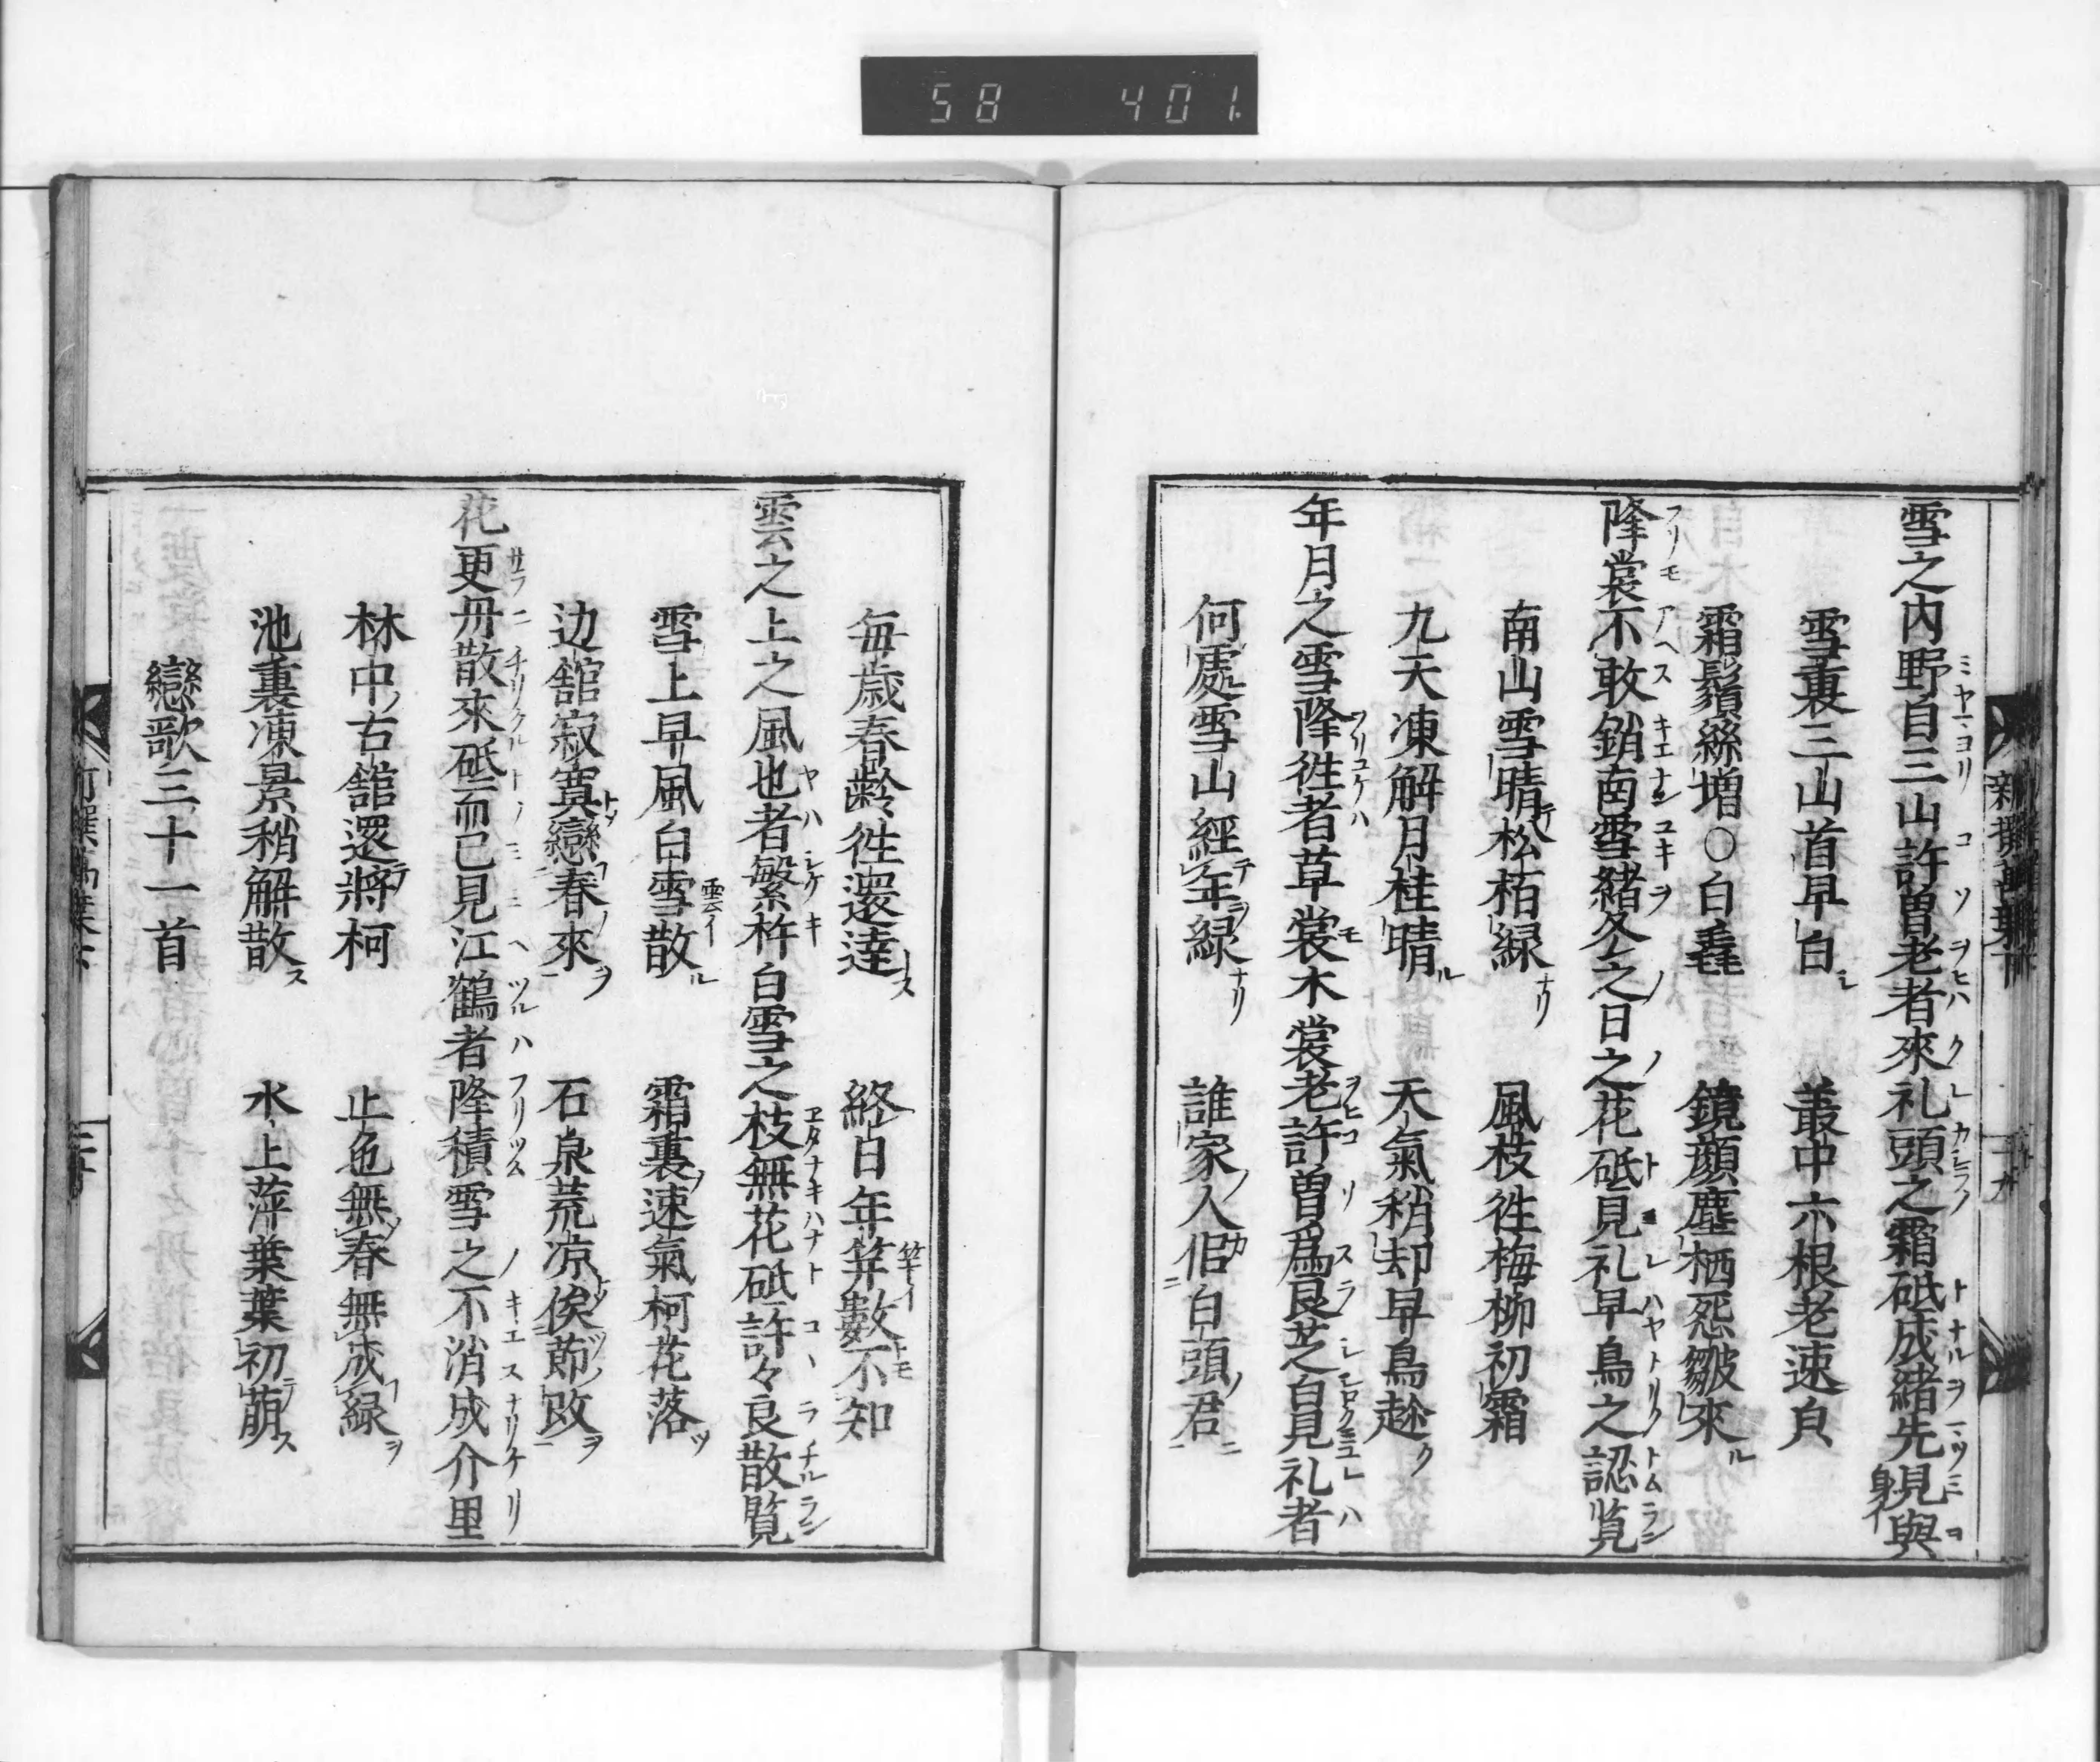 58 401.
新撰萬葉下
雪之内野自三山許曽老者來礼頭之霜砥成緒先見與
雪裏三山首早白 叢中六根老速貟
霜鬚絲増〇白毳 鏡顔塵栖怨皺來
降裳不敢銷南雪緒冬之日之花砥見礼早鳥之認覧
南山雪晴松栢緑 風枝徃梅柳初霜
九天凍解月桂晴 天氣稍却早鳥趂
年月之雪降徃者草裳木裳老許曽爲良芝白見礼者
何處雪山經年緑 誰家入佀白頭君
毎歳春齢徃還逹 終日年笇數不知
雲之上之風也者繁杵白雪之枝無花砥許々良散覧
雪上早風白雪散 霜裏速氣柯花落
辺舘寂寞戀春來 石泉荒凉俟節改
花更丹散來砥而已見江鶴者降積雪之不消成介里
林中古舘還將柯 止色無春無成緑
池裏凍景稍解散 水上萍葉葉初萠
戀歌三十一首